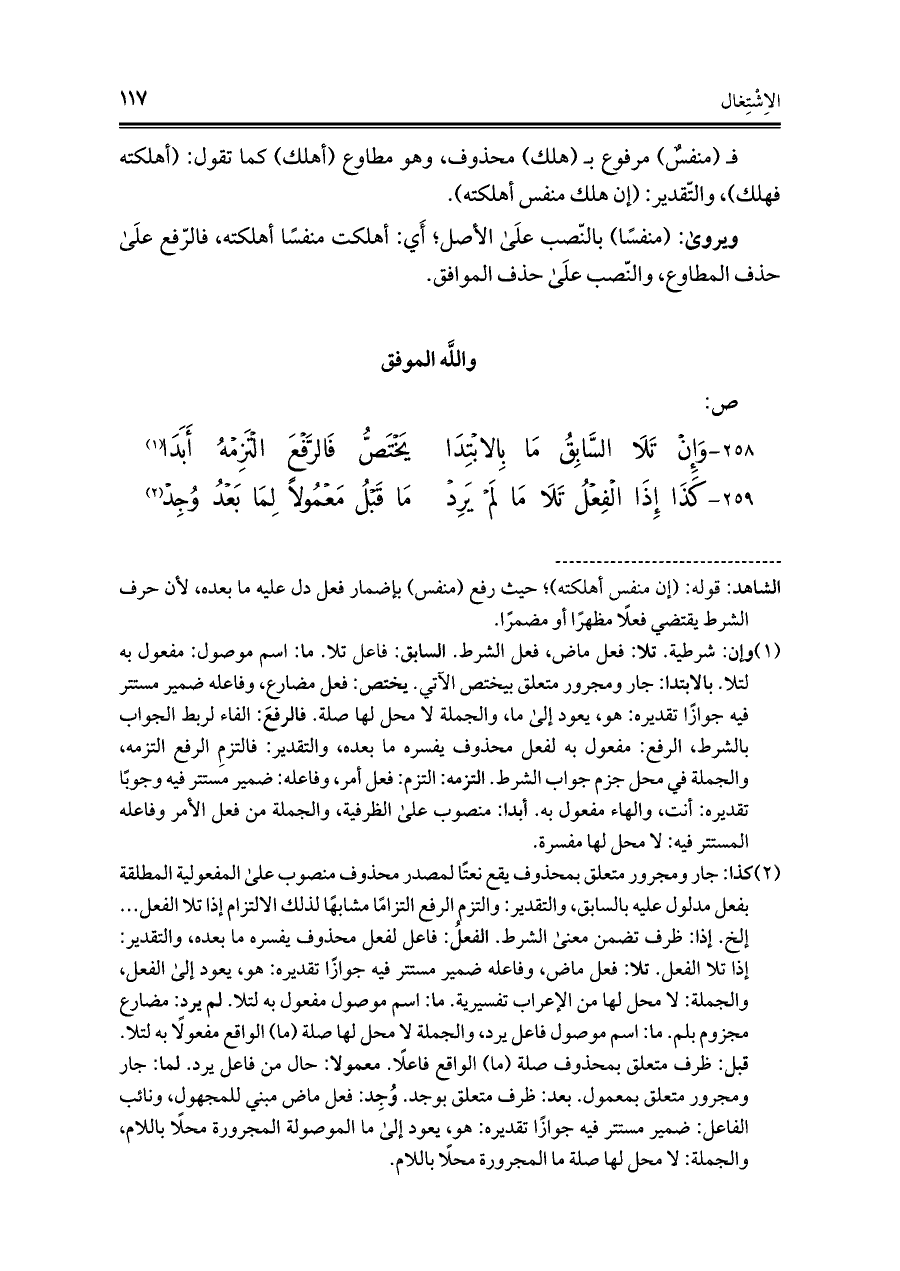 الاِشْتِغال ١١٧
فـ (منفسٌ) مرفوع بـ (هلك) محذوف، وهو مطاوع (أهلك) كما تقول: (أهلكته
فهلك)، والتّقدير: (إن هلك منفس أهلكته).
ويروىٰ: (منفسًا) بالنّصب علَىٰ الأصل؛ أَي: أهلكت منفسًا أهلكته، فالرّفع علَىٰ
حذف المطاوع، والنّصب علَىٰ حذف الموافق.
واللَّه الموفق
ص:
٢٥٨-وَإِنْ تَلَا السَّابِقُ مَا بِالابْتِدَا يَخْتَصُّ فَالرَّفْعَ الْتَزِمْهُ أَبَدَا(١)
٢٥٩-كَذَا إِذَا الْفِعْلُ تَلَا مَا لَمْ يَرِدْ مَا قَبْلُ مَعْمُولاً لِمَا بَعْدُ وُجِدْ(٢)
الشاهد: قوله: (إن منفس أهلكته)؛ حيث رفع (منفس) بإضمار فعل دل عليه ما بعده، لأن حرف
الشرط يقتضي فعلًا مظهرًا أو مضمرًا.
(١)وإن: شرطية. تلا: فعل ماض، فعل الشرط. السابق: فاعل تلا. ما: اسم موصول: مفعول به
لتلا. بالابتدا: جار ومجرور متعلق بيختص الآتي. يختص: فعل مضارع، وفاعله ضمير مستتر
فيه جوازًا تقديره: هو، يعود إلىٰ ما، والجملة لا محل لها صلة. فالرفعَ: الفاء لربط الجواب
بالشرط، الرفع: مفعول به لفعل محذوف يفسره ما بعده، والتقدير: فالتزمِ الرفع التزمه،
والجملة في محل جزم جواب الشرط. التزمه: التزم: فعل أمر، وفاعله: ضمير مستتر فيه وجوبًا
تقديره: أنت، والهاء مفعول به. أبدا: منصوب علىٰ الظرفية، والجملة من فعل الأمر وفاعله
المستتر فيه: لا محل لها مفسرة.
(٢)كذا: جار ومجرور متعلق بمحذوف يقع نعتًا لمصدر محذوف منصوب علىٰ المفعولية المطلقة
بفعل مدلول عليه بالسابق، والتقدير: والتزم الرفع التزامًا مشابهًا لذلك الالتزام إذا تلا الفعل...
إلخ. إذا: ظرف تضمن معنىٰ الشرط. الفعلُ: فاعل لفعل محذوف يفسره ما بعده، والتقدير:
إذا تلا الفعل. تلا: فعل ماض، وفاعله ضمير مستتر فيه جوازًا تقديره: هو، يعود إلىٰ الفعل،
والجملة: لا محل لها من الإعراب تفسيرية. ما: اسم موصول مفعول به لتلا. لم يرد: مضارع
مجزوم بلم. ما: اسم موصول فاعل يرد، والجملة لا محل لها صلة (ما) الواقع مفعولًا به لتلا.
قبل: ظرف متعلق بمحذوف صلة (ما) الواقع فاعلًا. معمولا: حال من فاعل يرد. لما: جار
ومجرور متعلق بمعمول. بعد: ظرف متعلق بوجد. وُجِد: فعل ماض مبني للمجهول، ونائب
الفاعل: ضمير مستتر فيه جوازًا تقديره: هو، يعود إلىٰ ما الموصولة المجرورة محلًا باللام،
والجملة: لا محل لها صلة ما المجرورة محلًا باللام.